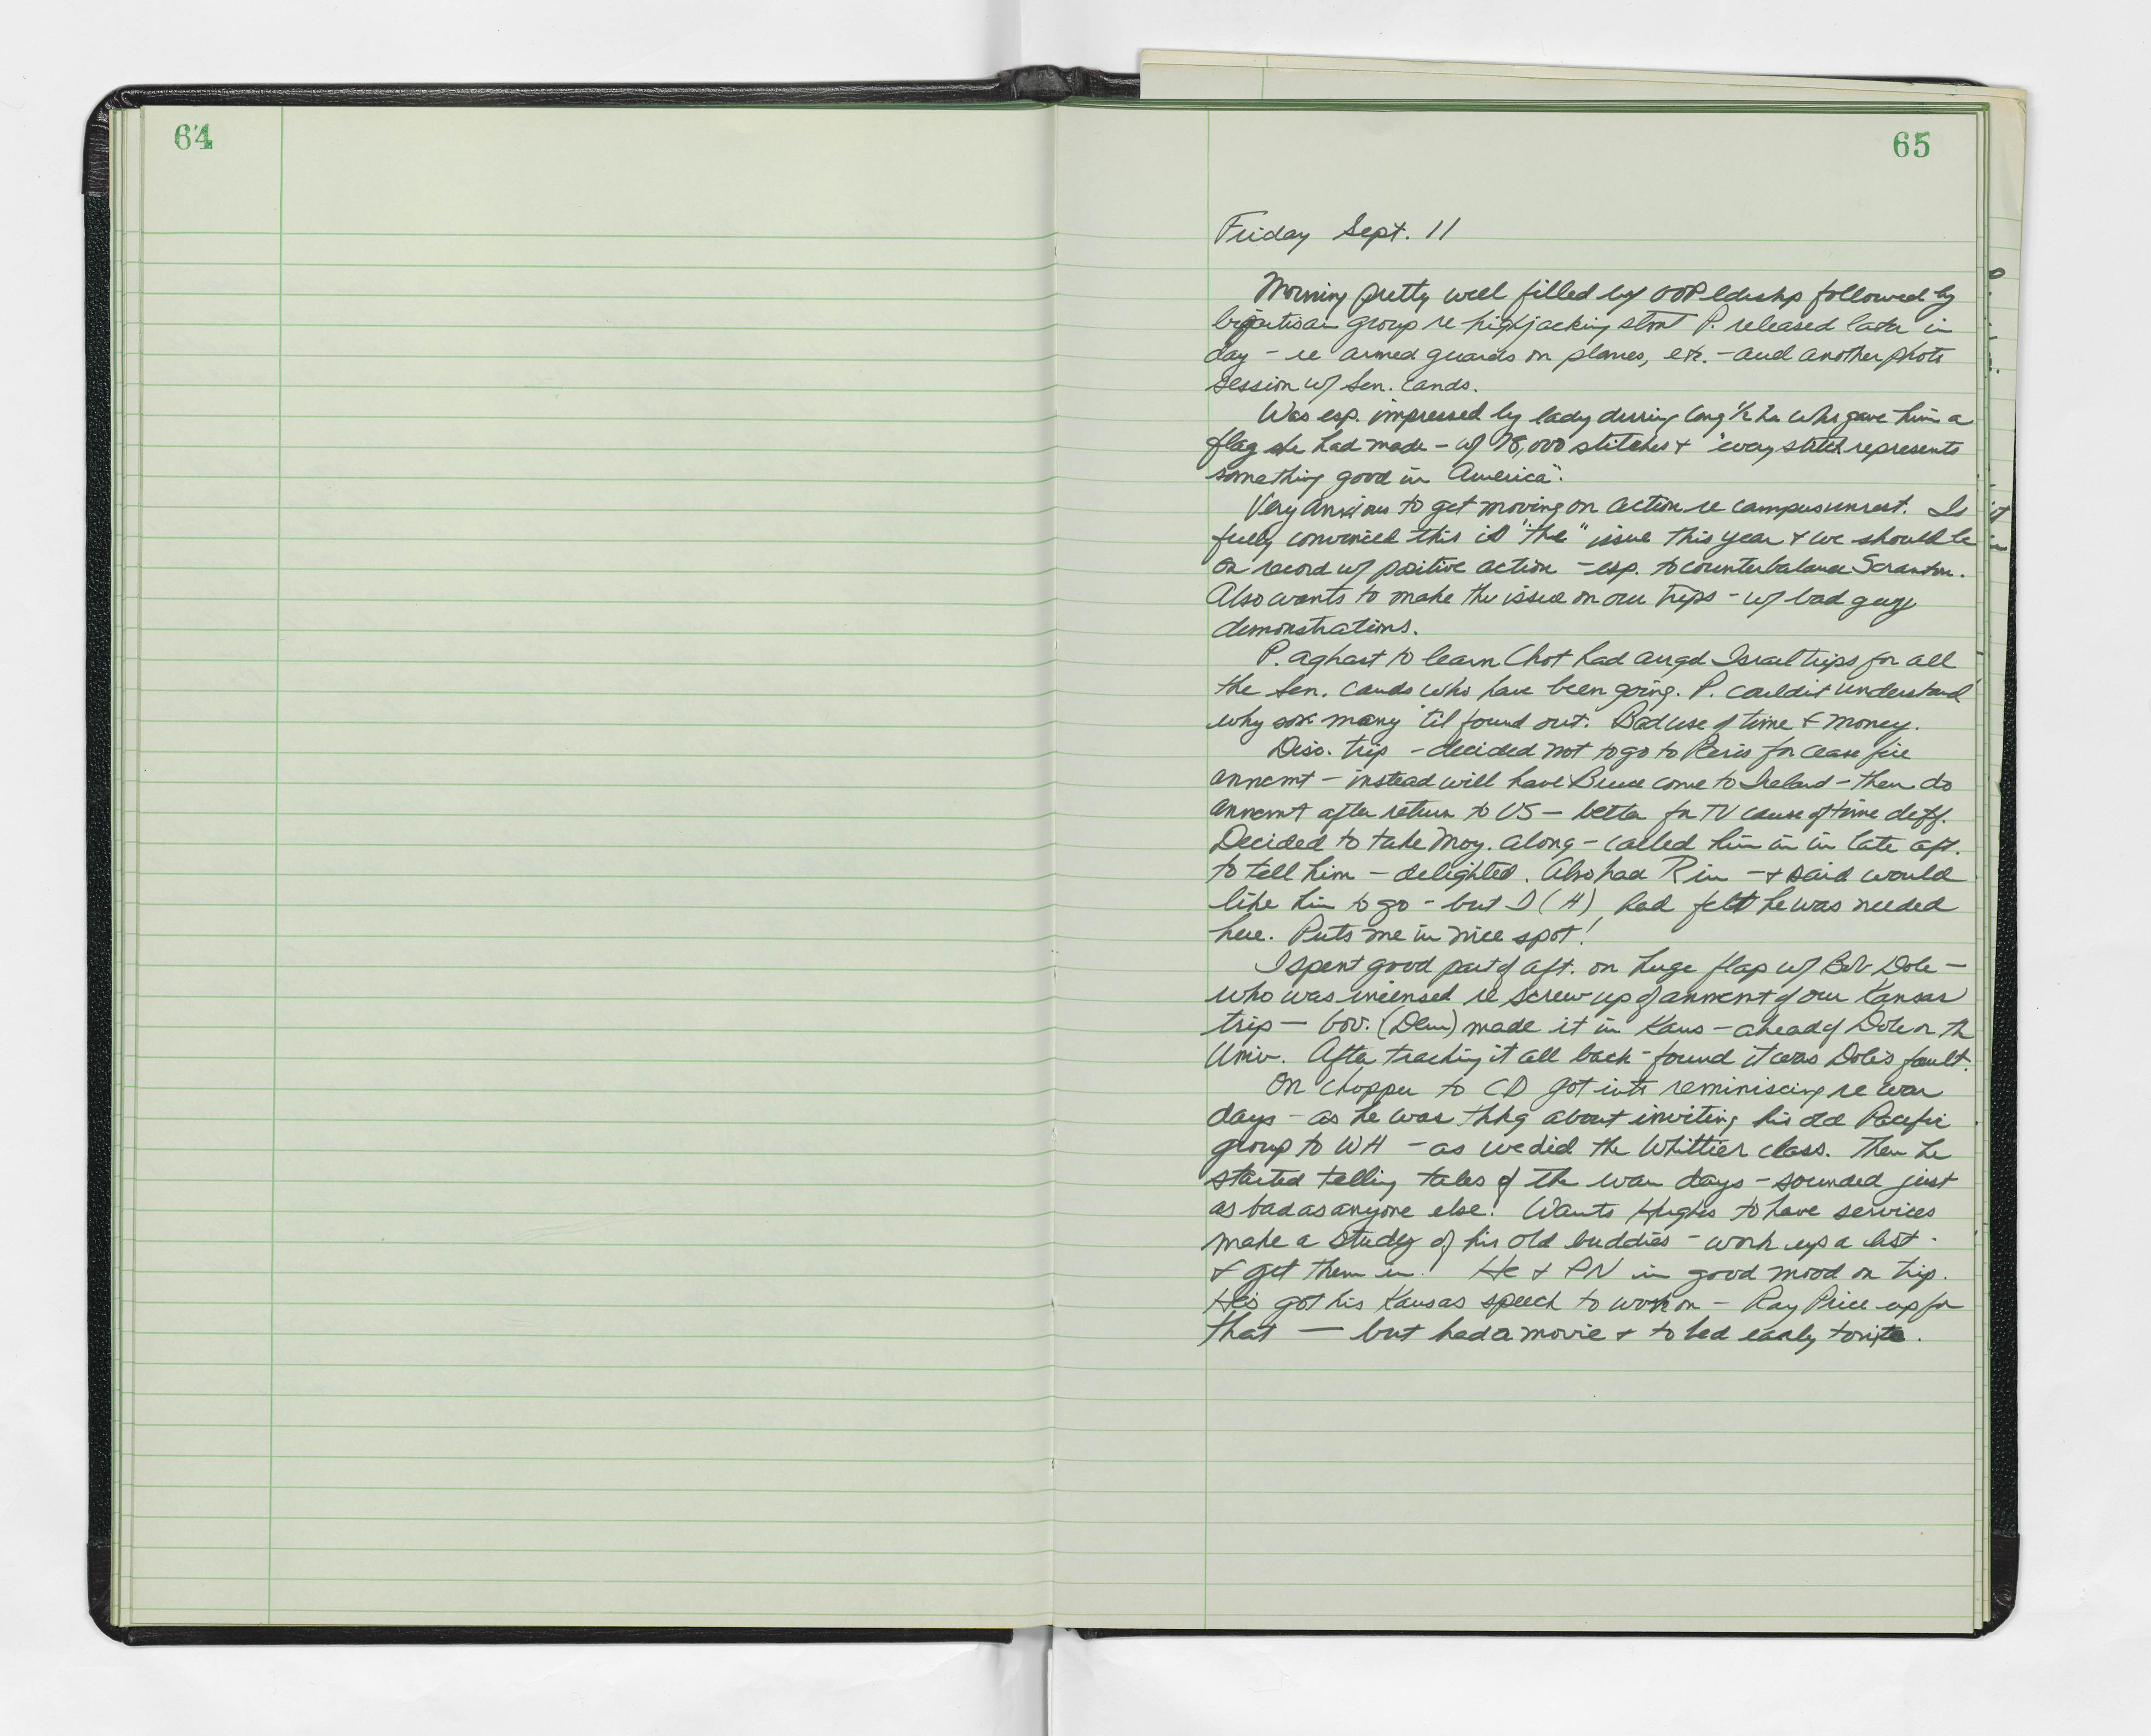 64
65
Friday Sept. 11
Morning pretty well filled by GOP ldrshp followed by
bipartisan group re highjacking stmt P. released later in
day - re armed guards on planes, etc. - and another photo
session w/ Sen. cands.
Was esp. impressed by lady during cong ½ hr who gave him a
flag she had made - w/ 78,000 stitches & "every stitch represents
something good in America".
Very anxious to get moving on action re campus unrest. Is
fully convinced this is "the" issue this year & we should be
on record w/ positive action - esp. to counterbalance Scranton.
Also wants to make the issue on our trips - w/ bad guy
demonstrations.
P. aghast to learn Chot had argd Israel trips for all
the Sen. cands who have been going. P. couldn't understand
why so many 'til found out. Bad use of time & money.
Disc. trip - decided not to go to Paris for cease fire
anncmt - instead will have Bruce come to Ireland - then do
anncmt after return to US - better for TV cause of time diff.
Decided to take Moy. along - called him in in late aft.
to tell him - delighted. Also had R in - & said would
like him to go - but I (H) had felt he was needed
here. Puts me in nice spot!
I spent good part of aft. on huge flap w/ Bob Dole -
who was incensed re screw up of anncmt of our Kansas
trip - Gov. (Dem) made it in Kans - ahead of Dole or the
Univ. After tracking it all back - found it was Dole's fault.
On chopper to CD got into reminiscing re war
days - as he was thkg about inviting his old Pacific
group to WH - as we did the Whittier class. Then he
started telling tales of the war days - sounded just
as bad as anyone else! Wants Hughes to have services
make a study of his old buddies - work up a list -
& get them in! He & PN in good mood on trip.
He's got his Kansas speech to work on - Ray Price up for
that — but had a movie & to bed early tonite.